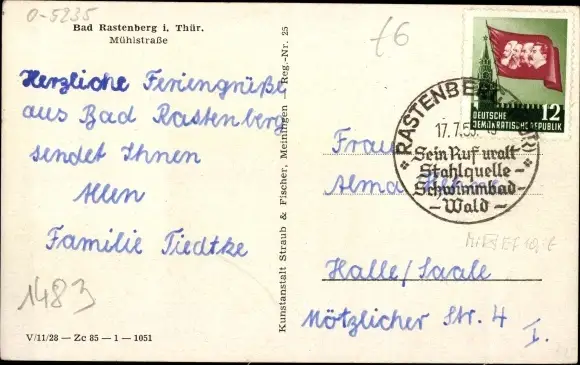 0-5235
Bad Rastenberg i. Thür.
Mühlstraße
£6
Herzliche Feriengrüße
aus Bad Rastenberg
sendet Ihnen
Allen
Familie Tiedtke
1483
V/11/28 — Zc 85 — 1 — 1051
Kunstanstalt Straub & Fischer, Meiningen Reg.-Nr. 25
DEUTSCHE
DEMOKRATISCHE REPUBLIK
12
RASTENBERG
17.7.53
Sein Ruf uralt
Stahlquelle -
Schwimmbad -
- Wald -
Frau
Alma
Halle/Saale
Mötzlicher Str. 4 I.